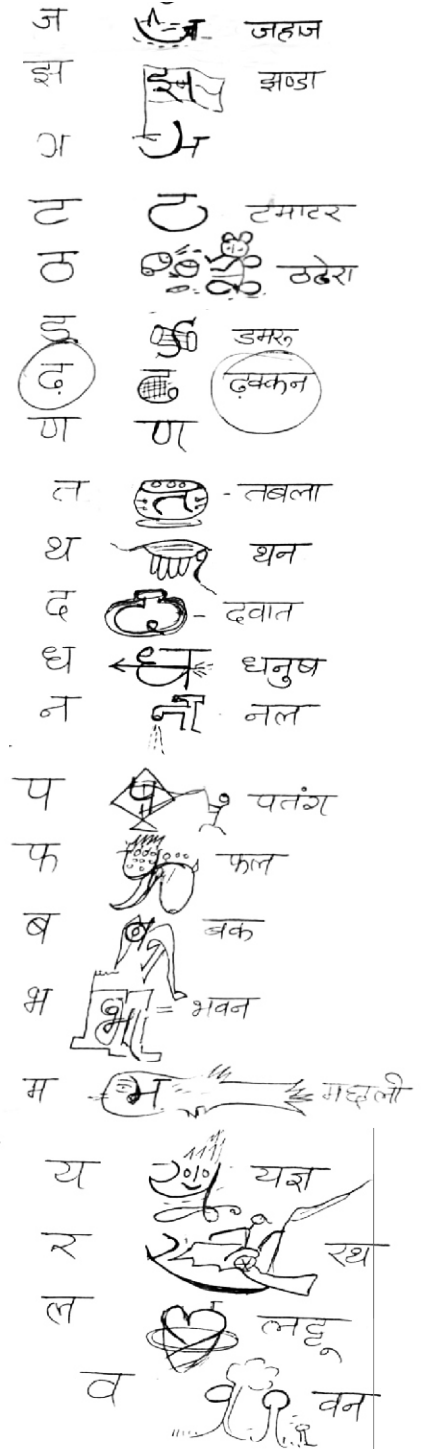 ज ज जहाज
झ झ झण्डा
ञ ञ
ट ट टमाटर
ठ ठठेरा
ड ड डमरू
ढ़ ढ ढ़क्कन
ण ण
त त - तबला
थ थ थन
द द - दवात
ध ध धनुष
न न नल
प प पतंग
फ फ फल
ब ब बक
भ भ = भवन
म म मछली
य य यज्ञ
र र रथ
ल ल लट्टू
व व वन